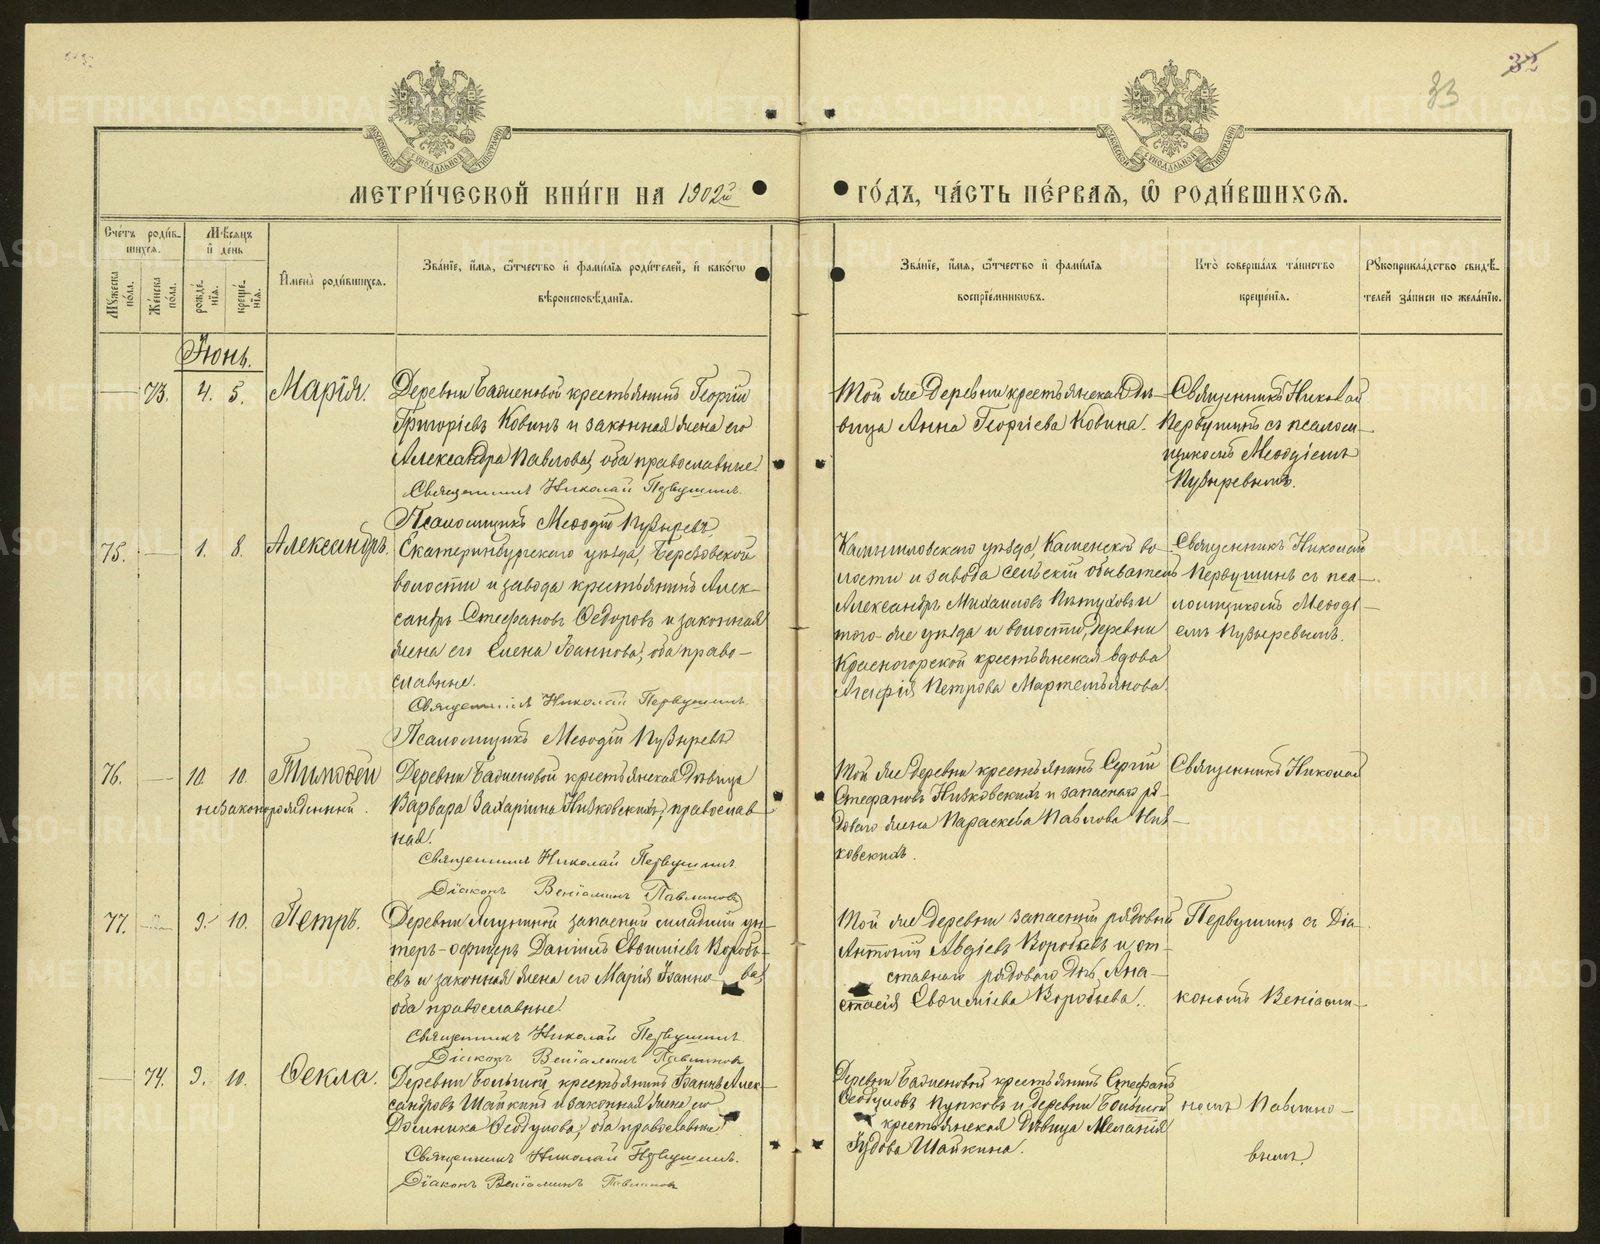 33
32
МЕТРИ́ЧЕСКОЙ КНИ́ГИ НА 1902й
ГО́ДЪ, ЧА́СТЬ ПЕ́РВАЯ, Ѿ РОДИ́ВШИХСЯ.
МОСКОВСКОЙ СѴНОДАЛЬНОЙ ТИПОГРАФІИ
МОСКОВСКОЙ СѴНОДАЛЬНОЙ ТИПОГРАФІИ
Сче́тъ роди́в-
шихся.
Му́жеска по́ла.
Же́нска по́ла.
Мѣ́сяцъ и҆ де́нь
рожде́нїя.
креще́нїя.
И҆мена̀ роди́вшихся.
Зва́нїе, и҆́мя, ѻ҆́тчество и҆ фами́лїя роди́телей, и҆ како́гѡ
вѣроисповѣ́данїя.
Зва́нїе, и҆́мя, ѻ҆́тчество и҆ фами́лїя
воспрїе́мникѡвъ.
Кто̀ соверша́лъ та́инство
креще́нїя.
Рꙋкоприкла́дство свидѣ́-
телей за́писи по жела́нїю.
Іюнь.
73. 4. 5. Марія.
Деревни Баженовой крестьянинъ Георгій
Григоріевъ Ковинъ и законная жена его
Александра Павлова, оба православные.
Священникъ Николай Первушинъ.
Псаломщикъ Меѳодій Пузыревъ
Той же деревни крестьянская дѣ-
вица Анна Георгіева Ковина.
Священникъ Николай
Первушинъ съ псалом-
щикомъ Меѳодіемъ
Пузыревымъ.
75. 1. 8. Александръ.
Екатеринбургскаго уѣзда, Березовской
волости и завода крестьянинъ Алек-
сандръ Стефановъ Ѳедоровъ и законная
жена его Елена Іоаннова, оба право-
славные.
Священникъ Николай Первушинъ.
Псаломщикъ Меѳодій Пузыревъ
Камышловскаго уѣзда, Каменской во-
лости и завода сельскій обыватель
Александръ Михаиловъ Пѣтуховъ и
того-же уѣзда и волости, деревни
Красногорской крестьянская вдова
Агафія Петрова Мартемьянова.
Священникъ Николай
Первушинъ съ пса-
ломщикомъ Меѳоді-
емъ Пузыревымъ.
76. 10. 10. Тимоѳей
незаконорожденный.
Деревни Баженовой крестьянская дѣвица
Варвара Захаріина Низковскихъ, православ-
ная.
Священникъ Николай Первушинъ
Діаконъ Веніаминъ Павлиновъ
Той же деревни крестьянинъ Сергій
Стефановъ Низковскихъ и запаснаго ря-
доваго жена Параскева Павлова Низ-
ковскихъ.
Священникъ Николай
77. 9. 10. Петръ.
запасный младшій ун-
теръ-офицеръ Даніилъ Евѳиміевъ Воробь-
евъ и законная жена его Марія Іоаннова,
оба православные.
Священникъ Николай Первушинъ
Діаконъ Веніаминъ Павлиновъ
Той же деревни запасный рядовый
Антоній Авдіевъ Воробьевъ и от-
ставнаго рядоваго дчь Ана-
стасія Евѳиміева Воробьева.
Первушинъ съ Діа-
кономъ Веніами-
74. 9. 10. Ѳекла.
Деревни Большой, крестьянинъ Іоаннъ Алек-
сандровъ Шайкинъ и законная жена его
Домника Ѳеодулова, оба православные
Священникъ Николай Первушинъ.
Діаконъ Веніаминъ Павлиновъ
Деревни Баженовой крестьянинъ Стефанъ
Ѳеодуловъ Пупковъ и деревни Большой
крестьянская дѣвица Меланія
Іудова Шайкина.
номъ Павлино-
вымъ.